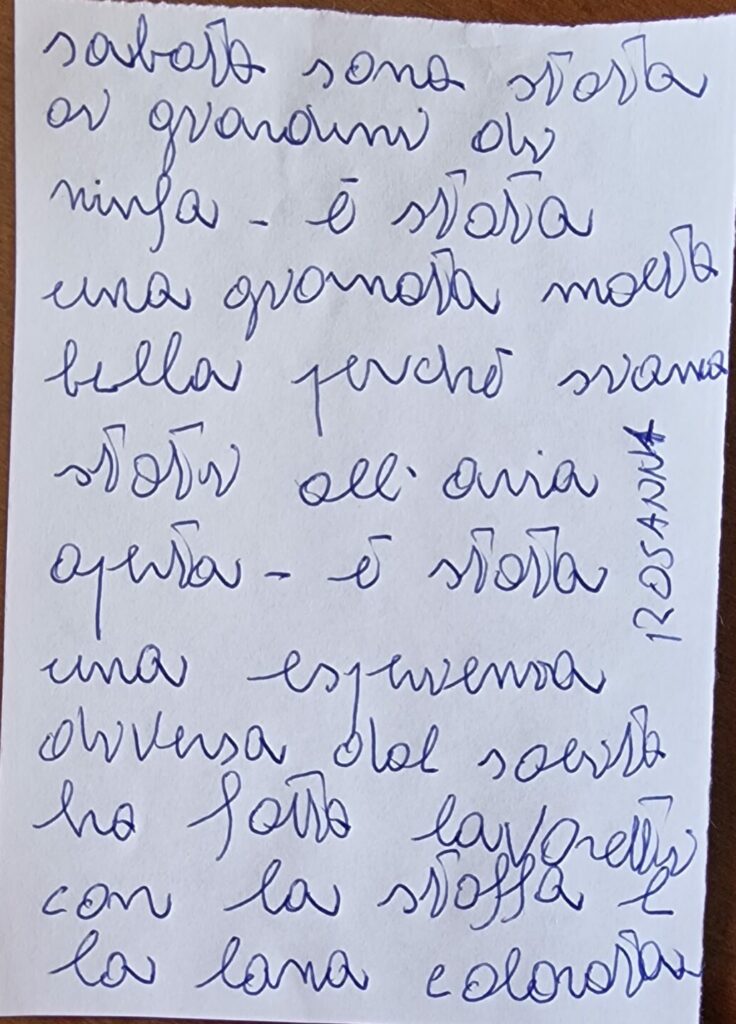 sabato sono stata
ai giardini di
ninfa - è stata
una giornata molto
bella perché siamo
stati all'aria
aperta - è stata
una esperienza
diversa dal solito
ho fatto lavoretti
con la stoffa e
la lana colorata
ROSANNA